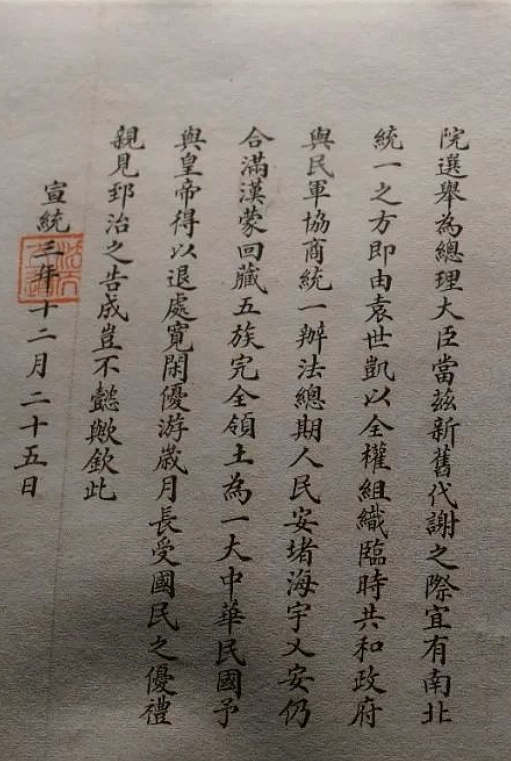 院選舉為總理大臣當兹新舊代謝之際宜有南北
統一之方即由袁世凱以全權組織臨時共和政府
與民軍協商統一辦法總期人民安堵海宇乂安仍
合滿漢蒙回藏五族完全領土為一大中華民國予
與皇帝得以退處寬閑優游歲月長受國民之優禮
親見郅治之告成豈不懿歟欽此
宣統三年十二月二十五日